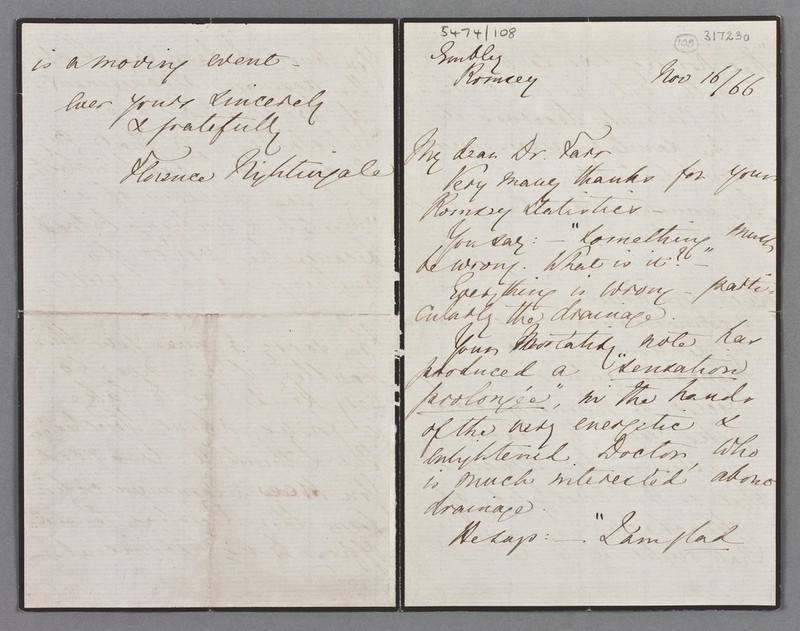 is a moving event -
Ever yours sincerely
& gratefully
Florence Nightingale
5474/108
108 317230
Embley
Romsey
Nov 16/66
My dear Dr. Farr
Very many thanks for your
Romsey Statistics -
You say: - "Something must
be wrong. What is it?" -
Everything is wrong - parti-
cularly the drainage.
Your Mortality note has
produced a "sensation
prolongée", in the hands
of the very energetic &
enlightened Doctor, who
is much interested about
drainage.
He says: - "I am glad